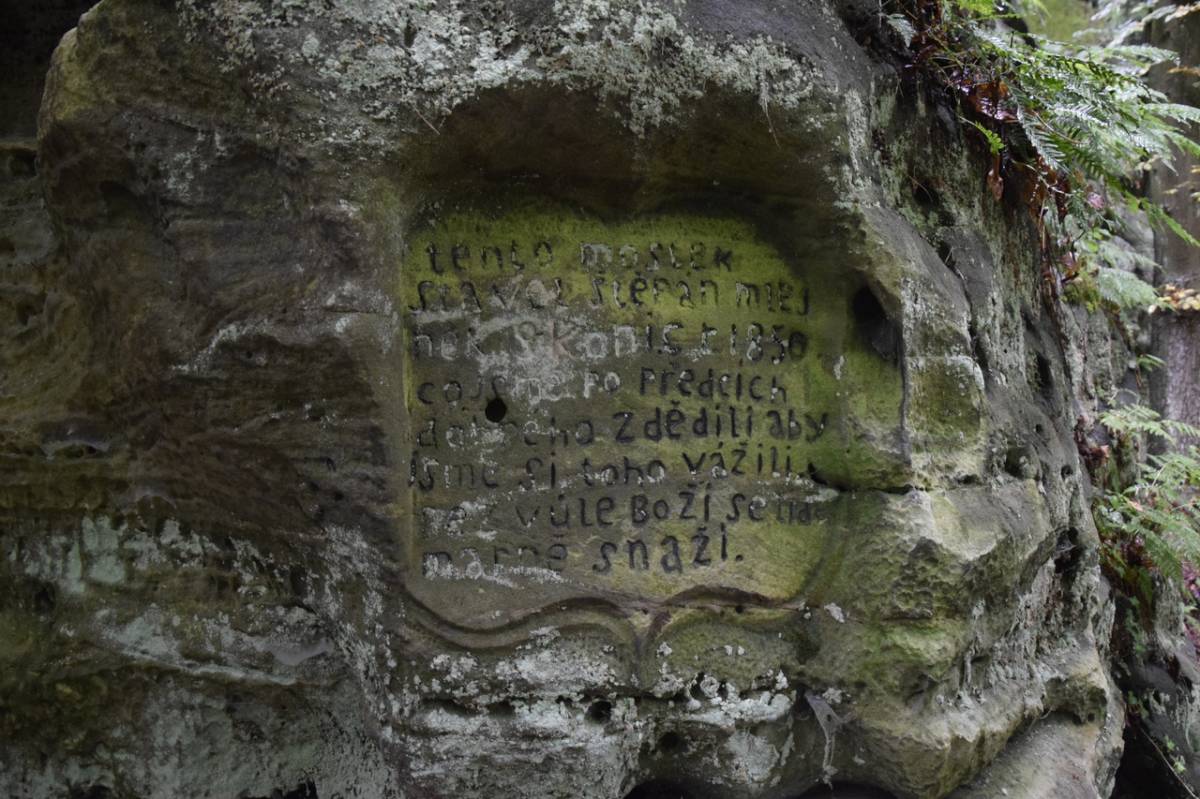 tento mostek
stavěl štěpán mlej
nek. Skonic r 1850
cojsme po předcich
dobreho zdědili aby
jsme si toho vážili,
vůle Boží se
marně snaží.